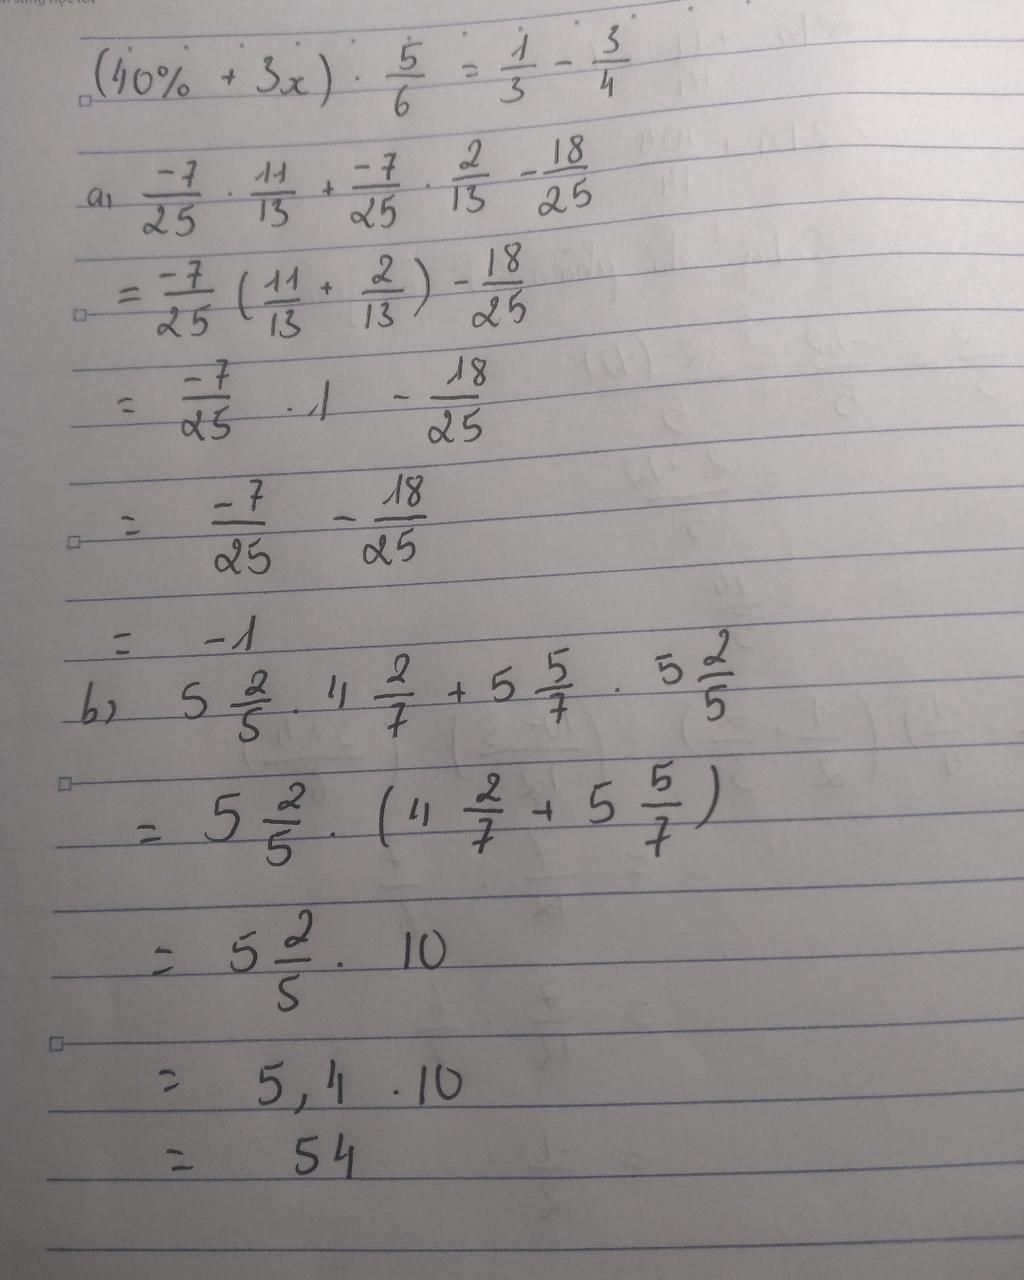 (40% + 3x) . 5/6 = 1/3 - 3/4
a, -7/25 . 11/13 + -7/25 . 2/13 - 18/25
= -7/25 (11/13 + 2/13) - 18/25
= -7/25 . 1 - 18/25
= -7/25 - 18/25
= -1
b, 5 2/5 . 4 2/7 + 5 5/7 . 5 2/5
= 5 2/5 . (4 2/7 + 5 5/7)
= 5 2/5 . 10
= 5,4 . 10
= 54